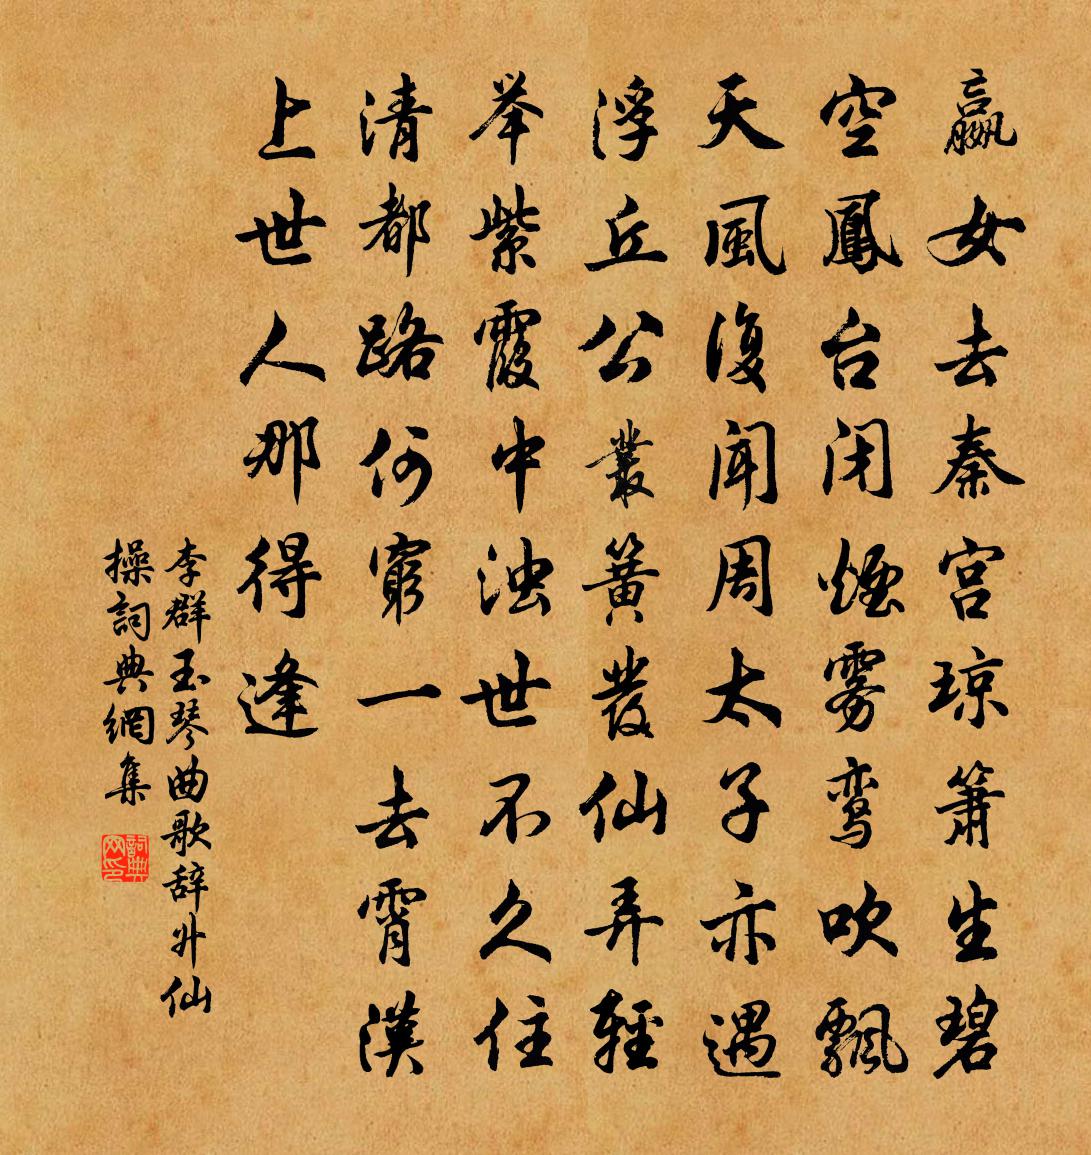 嬴女去秦宫琼箫生碧
空鳳台闭煙雾鸾吹飄
天風復闻周太子亦遇
浮丘公叢簧發仙弄輕
举紫霞中浊世不久住
清都路何窮一去霄漢
上世人那得逢
李群玉琴曲歌辞升仙
操詞典網集
詞典
网印